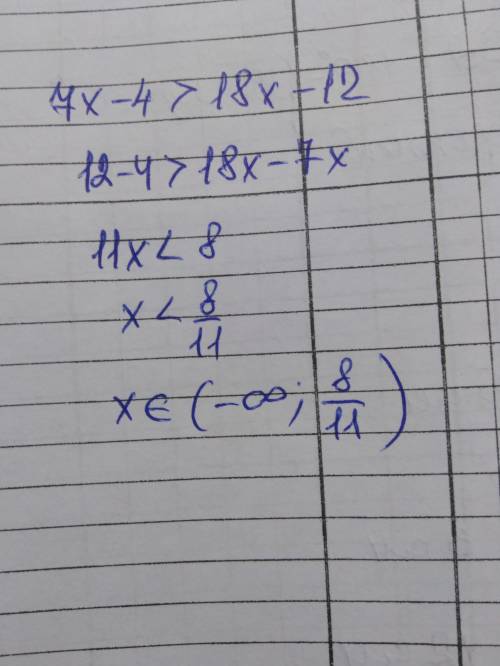 7x-4>18x-12
12-4>18x-7x
11x<8
x<8/11
x∈(-∞; 8/11)